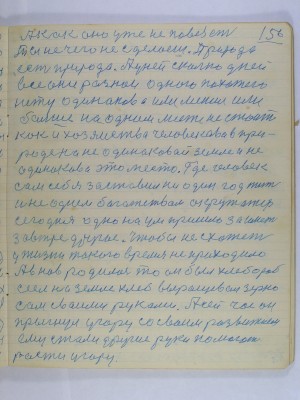 А как оно уже не повезет 156
Тоя нечего не сделаеш. Природа
есть природа. А у ней сколко дней
все они разнаи одного похожего
нету одинакова или менш или
болше на одном месте не стоят
как и хозяйства человекова в при-
роде на не одинаковай земле и не
одинакова это место. Где человек
сам себя заставил ни один год жить
и не одным богатством окружатся
сегодня одно на ум пришло захочет
завтре другое. Чтобы не схотет
у жизни такога время не приходило
Авнов родилас то он был хлебароб
сеел на земле хлеб выращевал зерно
сам своеми руками. А сей час он
прыгнул угару со своим развитием
ему стали другие руки помогат
расти угару.